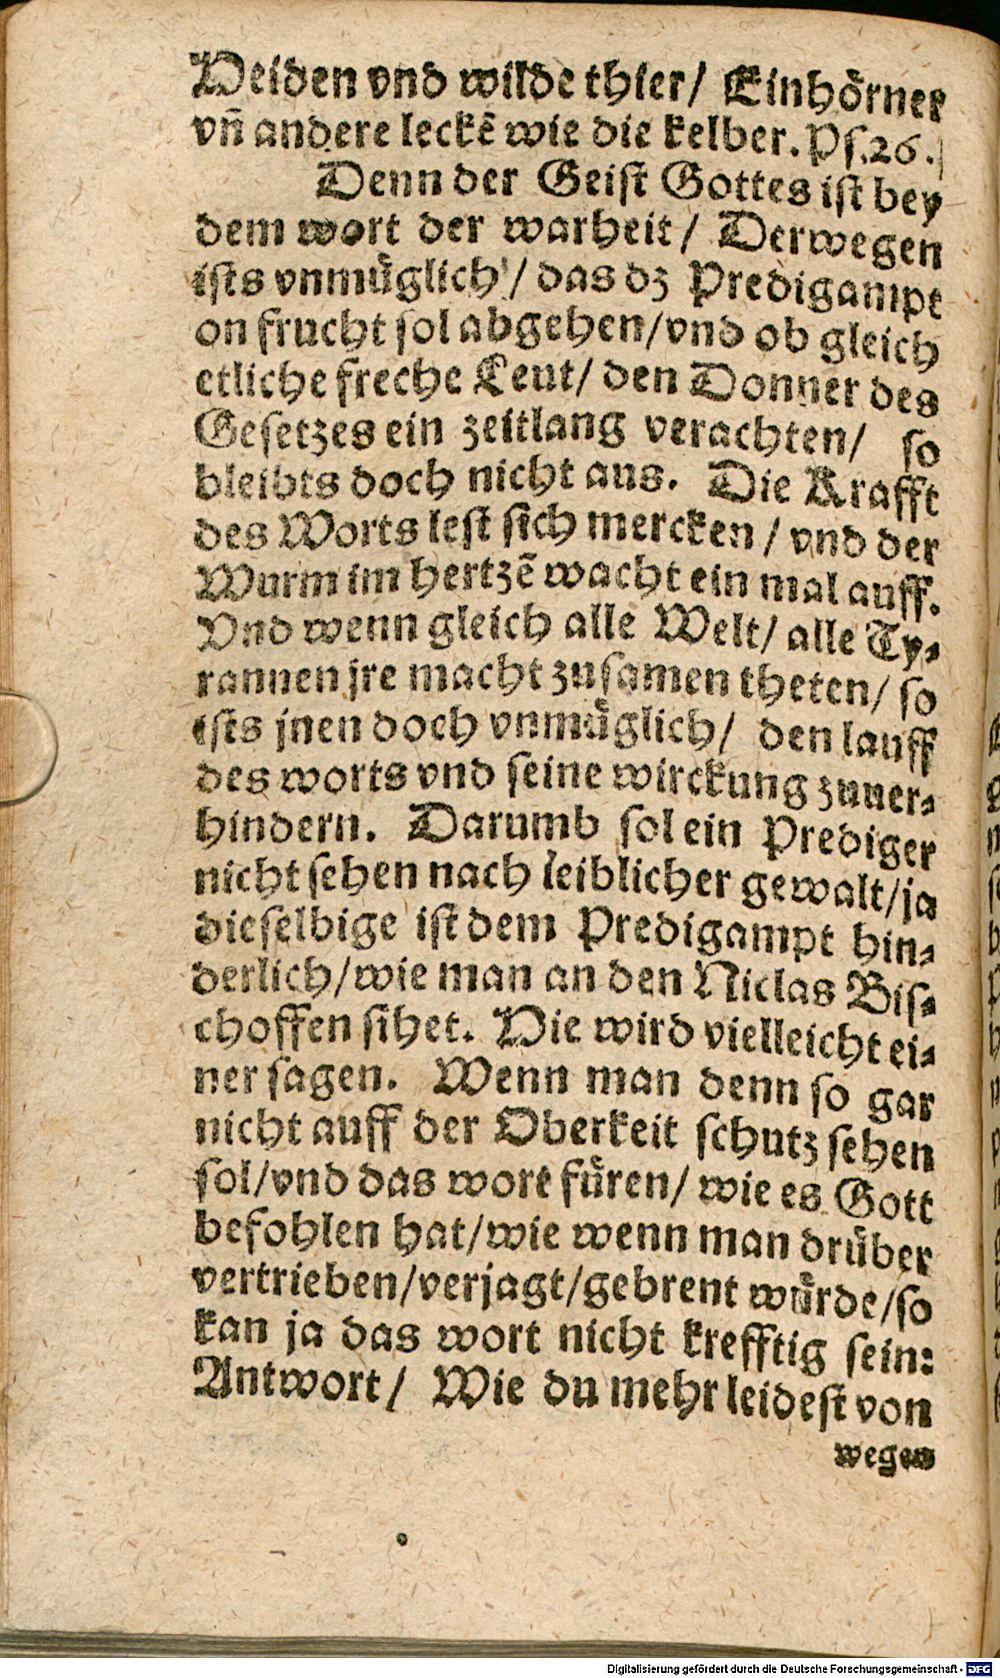 Heiden vnd wilde thier/ Einhörner
vñ andere leckẽ wie die kelber. Ps.26.
Denn der Geist Gottes ist bey
dem wort der warheit/ Derwegen
ists vnmüglich/ das dz Predigampt
on frucht sol abgehen/vnd ob gleich
etliche freche Leut/ den Donner des
Gesetzes ein zeitlang verachten/ so
bleibts doch nicht aus. Die Krafft
des Worts lest sich mercken/ vnd der
Wurm im hertzẽ wacht ein mal auff.
Vnd wenn gleich alle Welt/ alle Ty-
rannen jre macht zusamen theten/ so
ists jnen doch vnmüglich/ den lauff
des worts vnd seine wirckung zuuer-
hindern. Darumb sol ein Prediger
nicht sehen nach leiblicher gewalt/ja
dieselbige ist dem Predigampt hin-
derlich/wie man an den Niclas Bis-
choffen sihet. Hie wird vielleicht ei-
ner sagen. Wenn man denn so gar
nicht auff der Oberkeit schutz sehen
sol/vnd das wort füren/ wie es Gott
befohlen hat/wie wenn man drüber
vertrieben/verjagt/gebrent würde/so
kan ja das wort nicht krefftig sein:
Antwort/ Wie du mehr leidest von
wegen
Digitalisierung gefördert durch die Deutsche Forschungsgemeinschaft - DFG